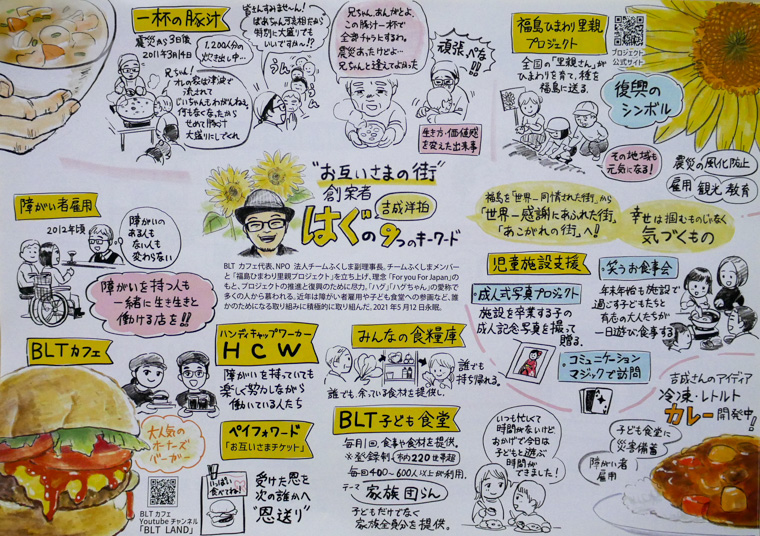 一杯の豚汁
震災から3日後
2011年3月14日
1,200人分の
炊き出し中…
兄ちゃん!
オレの家は津波で
流されて
じいちゃんもわがんねぇ。
何もなくなったから
せめて豚汁
大盛りにしてくれ
皆さんすみませーん!
ばあちゃん
特別に大盛りでも
いいですかね〜!?
うん
うん
兄ちゃん、ありがとよ。
この豚汁一杯で
全部チャラにするわ。
震災あったけどよ…
兄ちゃんと逢えてよかった
頑張っぺな!!
生き方・価値観
を変えた出来事
福島ひまわり里親
プロジェクト
プロジェクト
公式サイト
全国の「里親さん」が
ひまわりを育て、種を
福島に送る。
復興の
シンボル
その地域も
元気になる!
震災の風化防止
雇用 観光 教育
"お互いさまの街"
創案者
吉成洋拍
はぐの9つのキーワード
BLT カフェ代表、NPO 法人チームふくしま副理事長。チームふくしまメンバー
と「福島ひまわり里親プロジェクト」を立ち上げ、理念「For you For Japan」の
もと、プロジェクトの推進と復興のために尽力。「ハグ」「ハグちゃん」の愛称で
多くの人から慕われる。近年は障がい者雇用や子ども食堂への参画など、誰
かのためになる取り組みに積極的に取り組んだ。2021 年 5 月 12 日永眠。
福島を「世界一同情された街」から
「世界一感謝にあふれた街」
「あこがれの街」へ!!
幸せは掴むものじゃなく
気づくもの
障がい者雇用
2012年頃
障がいの
ある人も
ない人も
変わらない
障がいを持つ人も
一緒に生き生きと
働ける店を!!
児童施設支援
成人式写真プロジェクト
施設を卒業する子の
成人記念写真を撮って
贈る。
コミュニケーション
マジックで訪問
笑うお食事会
年末年始も施設で
過ごす子どもたちと
有志の大人たちが
一日遊び、食事する
BLTカフェ
大人気の
オーナーズ
バーガー
BLT カフェ
Youtube チャンネル
「BLT LAND」
ハンディキャップワーカー
HCW
障がいを持っていても
楽しく努力しながら
働いている人たち
ペイフォワード
「お互いさまチケット」
いっぱい
食べてね!
受けた恩を
次の誰かへ
"恩送り"
みんなの食糧庫
誰でも
持ち帰れる。
誰でも、余っている食材を提供し、
BLT子ども食堂
毎月1回、食事や食材を提供。
※登録制(約220世帯超)
毎回400〜600人以上が利用。
テーマ
家族団らん
子どもだけでなく
家族全員分を提供。
いつも忙しくて
時間がないけど、
おかげで今日は
子どもと遊ぶ
時間が
できました!
吉成さんのアイディア
冷凍・レトルト
カレー開発中!
子ども食堂に
災害備蓄
障がい者
雇用